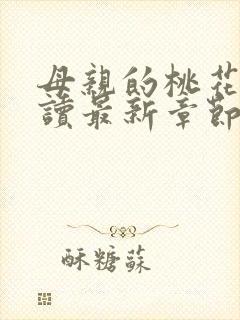 母親的桃花
讀最新章節
酥糖蘇